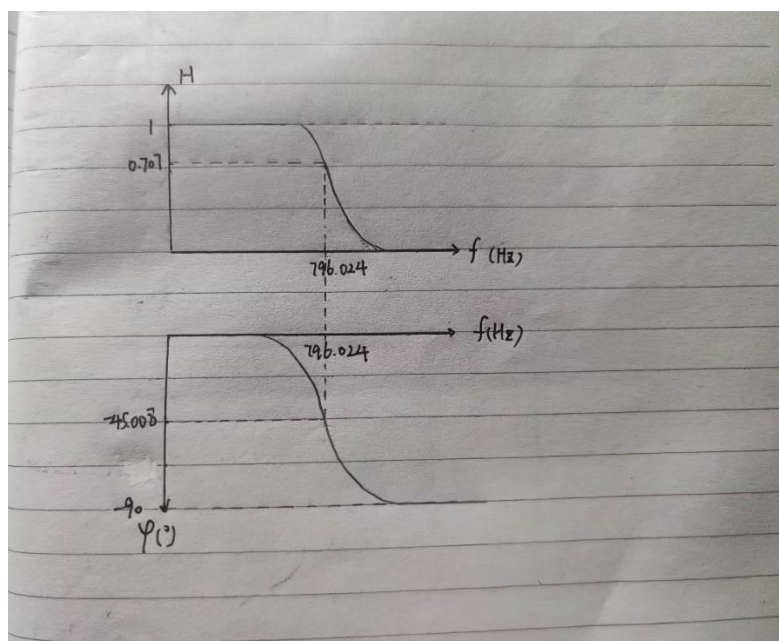 H
1
0.707
796.024
f (Hz)
796.024
f(Hz)
-45.008
-90
φ(°)